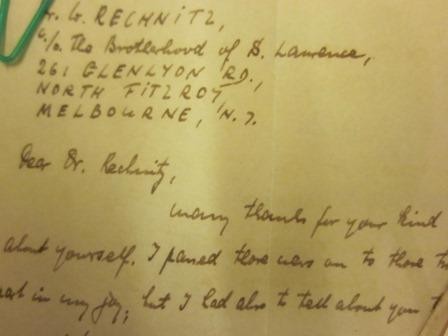 Dr. W. RECHNITZ,
c/o. The Brotherhood of S. Lawrence,
261 GLENLYON RD.,
NORTH FITZROY
MELBOURNE, N. 7.
Dear Dr. Rechnitz,
many thanks for your kind
about yourself. I passed those news on to those
in my joy; but I had also to tell about you